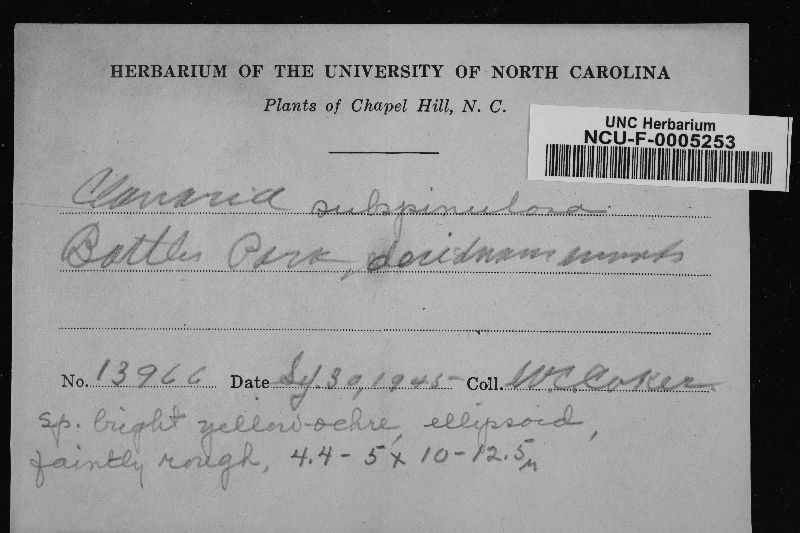 HERBARIUM OF THE UNIVERSITY OF NORTH CAROLINA
Plants of Chapel Hill, N. C.
UNC Herbarium
NCU-F-0005253
Clavaria subspinulosa
Battles Park, deciduous woods
No. 13966 Date Sy. 30, 1945 Coll. W.C. Coker
sp. bright yellow-ochre, ellipsoid,
faintly rough, 4.4 - 5 x 10 - 12.5 μ